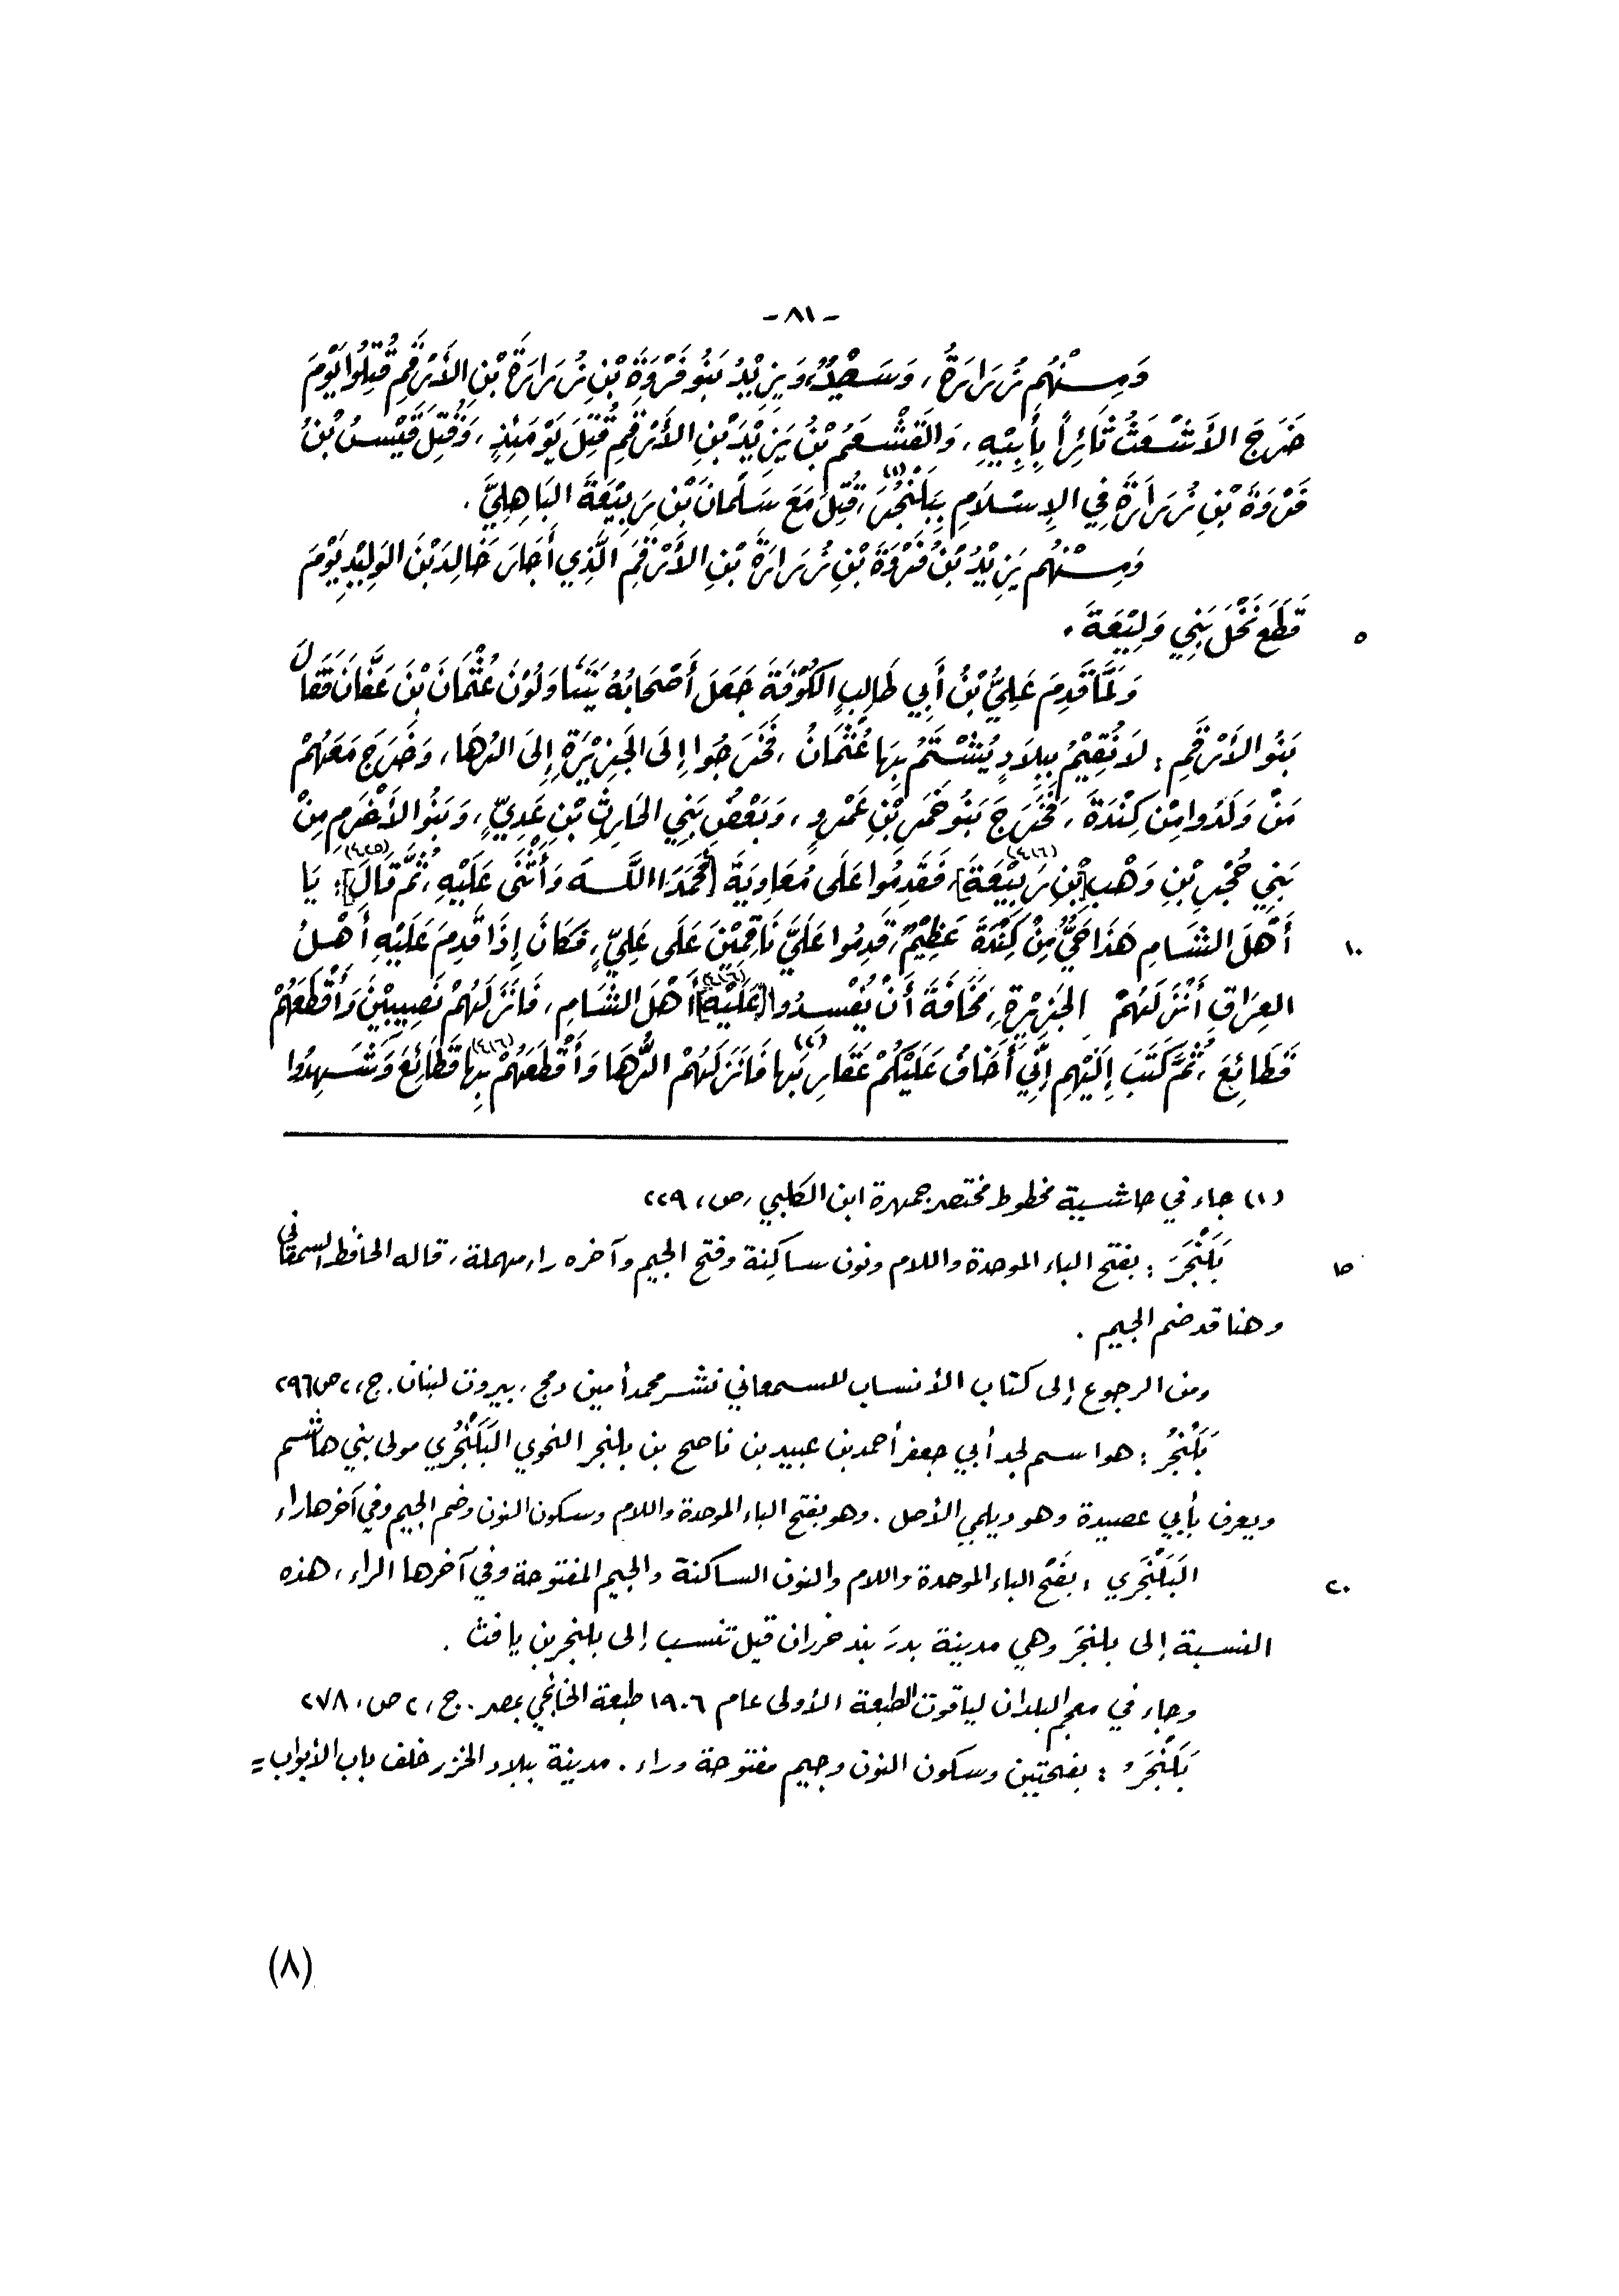 - ٨١ -
وَمِنْهُم زُرَارَةُ، وَسَعْيدٌ، وَيَزِيْدُ بَنُو فَرْوَةَ بْنِ زُرَارَةَ بْنِ الأَرْقَمِ قُتِلُوا يَوْمَ
خَرَجَ الأَشْعَثُ ثَائِراً بِأَبِيْهِ، وَالقَشْعَمُ بْنُ يَزِيْدَ بْنِ الأَرْقَمِ قُتِلَ يَوْمَئِذٍ، وَقُتِلَ قَيْسُ بْنُ
فَرْوَةَ بْنِ زُرَارَةَ فِي الإِسْلَامِ بِبَلَنْجُرَ،(١) قُتِلَ مَعَ سَلْمَانَ بْنِ رَبِيْعَةَ البَاهِلِيَّ.
وَمِنْهُم يَزِيْدُ بْنُ فَرْوَةَ بْنِ زُرَارَةَ بْنِ الأَرْقَمِ الَّذِي أَجَارَ خَالِدَ بْنَ الوَلِيْدِ يَوْمَ
٥ قَطَعَ نَخْلَ بَنِي وَلِيْعَةَ.
وَلَمَّا قَدِمَ عَلِيُّ بْنُ أَبِي طَالِبٍ الكُوْفَةَ جَعَلَ أَصْحَابُهُ يَتَنَاوَلُوْنَ عُثْمَانَ بْنَ عَفَّانَ فَقَالَ
بَنُو الأَرْقَمِ: لَا نُقِيْمُ بِبِلَادٍ يُشْتَمُ بِهَا عُثْمَانُ، فَخَرَجُوا إِلَى الجَزِيْرَةِ إِلَى الرُهَا، وَخَرَجَ مَعَهُمْ
مَنْ وَلَدُوا مِنْ كِنْدَةَ، فَخَرَجَ بَنُو خَمَرِ بْنِ عَمْرٍو، وَبَعْضُ بَنِي الحَارِثِ بْنِ عَدِيٍّ، وَبَنُو الأَخْرَمِ مِنْ
بَنِي حُجْرِ بْنِ وَهْبِ [بْنِ رَبِيْعَةَ](٤١٦)، فَقَدِمُوا عَلَى مُعَاوِيَةَ [فَحَمَدَ اللَّهَ وَأَثْنَى عَلَيْهِ، ثُمَّ قَالَ](٤٢٥): يَا
١٠ أَهْلَ الشَامِ هَذَا حَيٌّ مِنْ كِنْدَةَ عَظِيْمٌ، قَدِمُوا عَلَيَّ نَاقِمِيْنَ عَلَى عَلِيٍّ، فَكَانَ إِذَا قَدِمَ عَلَيْهِ أَهْلُ
العِرَاقِ أَنْزَلَهُمْ الجَزِيْرَةِ، مَخَافَةَ أَنْ يُفْسِدُوا [عَلَيْهِ](٤١٦) أَهْلَ الشَامِ، فَأَنْزَلَهُمْ نَصِيبِيْنَ وَأَقْطَعَهُمْ
قَطَائِعَ، ثُمَّ كَتَبَ إِلَيْهِم إِنِّي أَخَافُ عَلَيْكُمْ عَقَارِبَهَا(٢) فَأَنْزَلَهُمْ الرُّهَا وَأَقْطَعَهُمْ بِهَا(٤١٦) قَطَائِعَ وَشَهِدُوا
(١) جاء في حاشية مخطوط مختصر جمهرة ابن الكلبي، ص: ٢٢٩
١٥ بَلَنْجَرَ: بفتح الباء الموحدة واللام ونون ساكِنة وفتح الجيم وآخره راء مهملة، قاله الحافظ السمعاني
وهنا قد ضم الجيم.
ومن الرجوع إلى كتاب الأنساب للسمعاني نشر محمد أمين دمج، بيروت لبنان. ج: ٢ ص: ٢٩٦
بَلَنْجُرُ: هو اسم لجد أبي جعفر أحمد بن عبيد بن ناصح بن بلنجر النحوي البَلَنْجُري مولى بني هاشم
ويعرف بأبي عصيدة وهو ديلمي الأصل. وهو بفتح الباء الموحدة واللام وسكون النون وضم الجيم وفي آخرها راء
٢٠ البَلَنْجَري: بفَتْح الباء الموحدة واللام والنون الساكنة والجيم المفتوحة وفي آخرها الراء، هذه
النسبة إلى بلنجَر وهي مدينة بدرَبند خزران قيل تنسب إلى بلنجر بن يافث.
وجاء في معجم البلدان لياقوت الطبعة الأولى عام ١٩٠٦ طبعة الخانجي بمصر. ج: ٢ ص: ٢٧٨
بَلَنْجَرُ: بفتحتين وسكون النون وجيم مفتوحة وراء. مدينة ببلاد الخزر خلف باب الأبواب =
(٨)